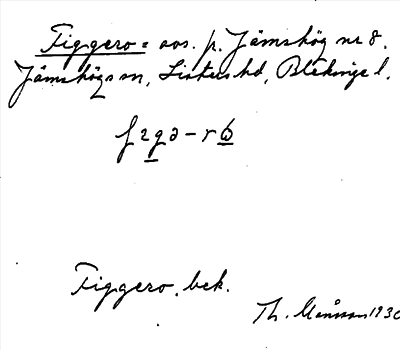 Figgero = avs. p. Jämshög nr 8.
Jämshögs sn, Listers hd, Blekinge l.
Figgero, bek.
Th. Månsson 1930